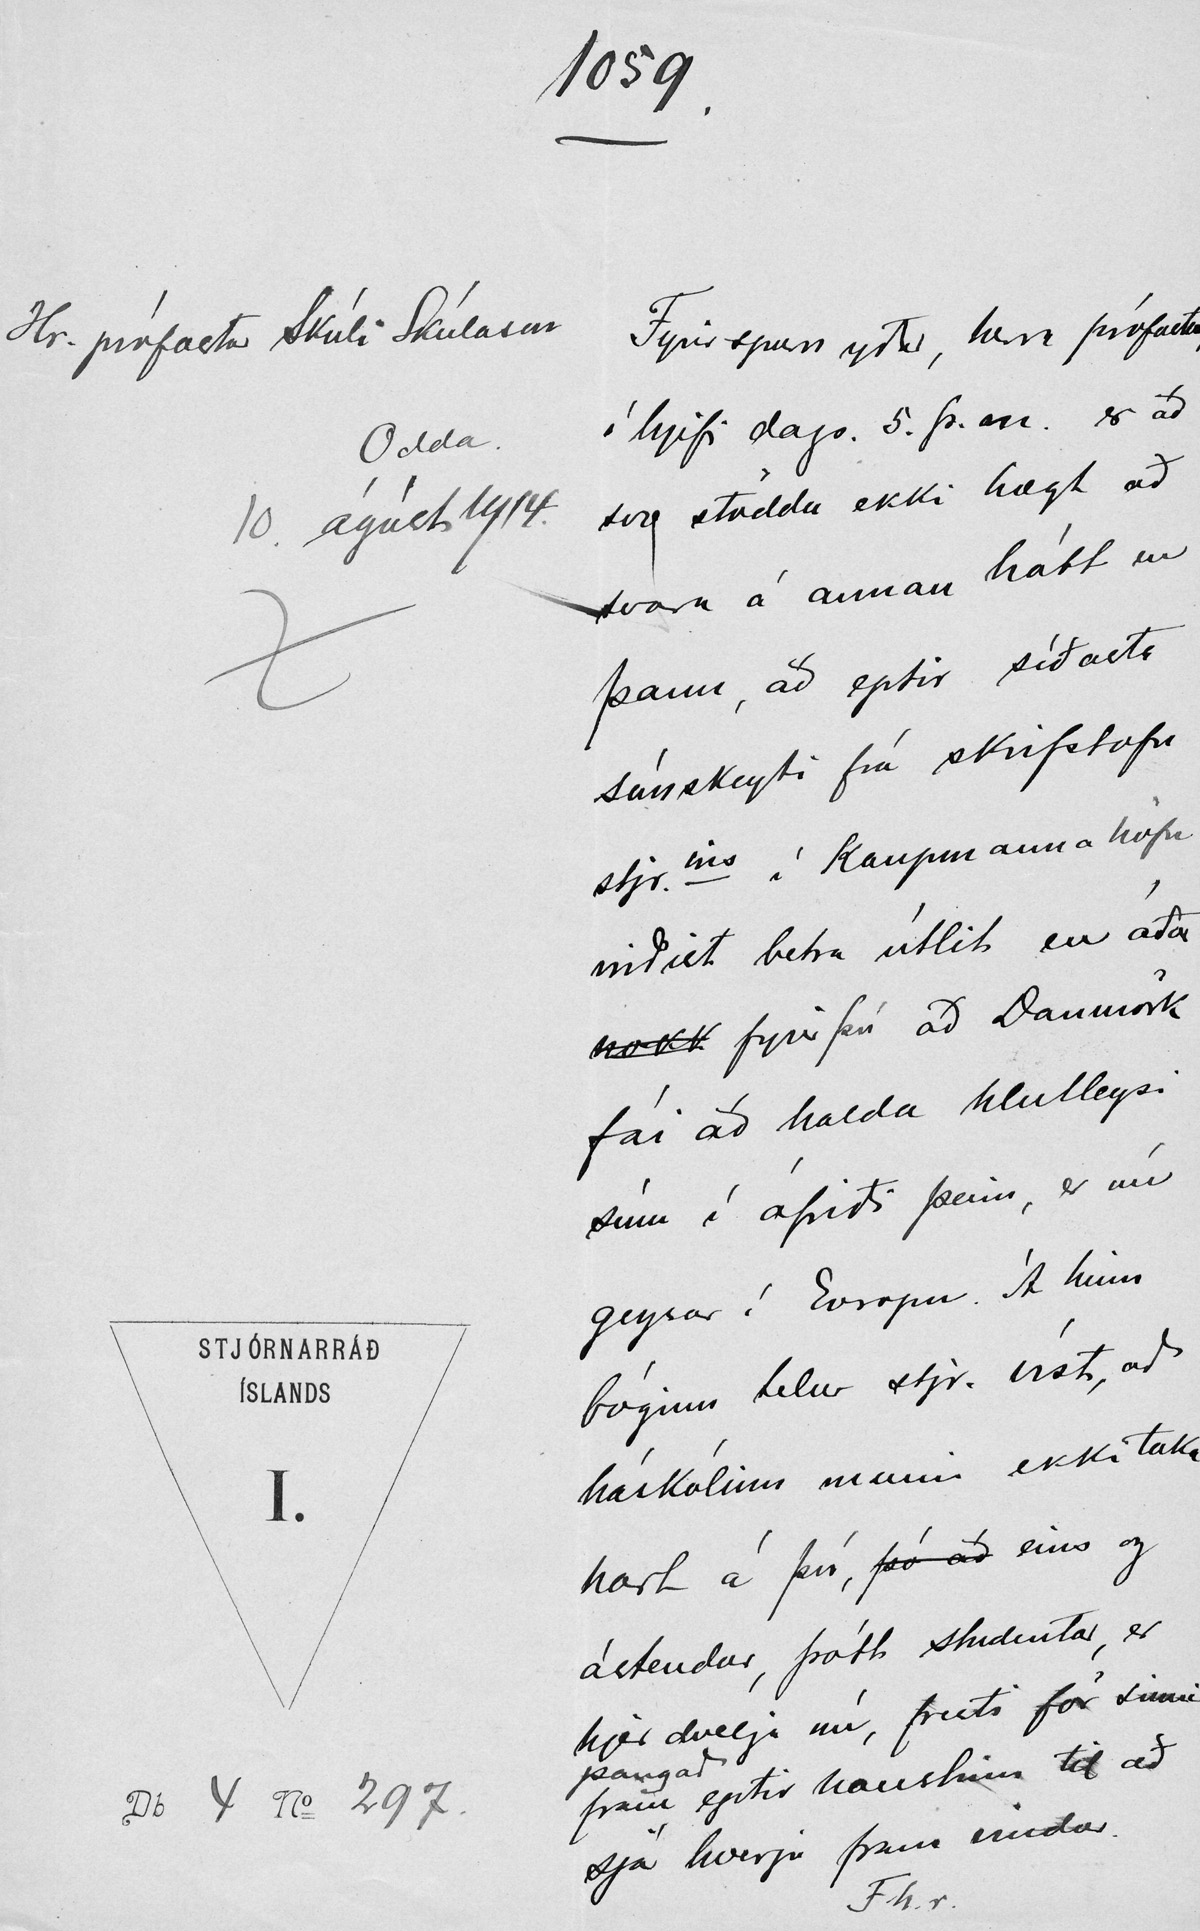 1059.
Hr. prófastur Skúli Skúlason
Odda.
10. ágúst 1914.
Fyrirspurn yðar, herra prófastur,
í brjefi dags. 5. þ. m. er að
svo stöddu ekki hægt að
svara á annan hátt en
þann, að eptir síðasta
símskeyti frá skrifstofu
stjr. ins í Kaupmannahöfn
virðist betra útlit en áður
nokk fyrir því að Danmörk
fái að halda hlutleysi
sínu í ófriði þeim, er nú
geysar í Evropu. Á hinn
bóginn telur stjr. víst, að
háskólinn muni ekki taka
hart á því, þó að eins og
ástendur, þótt studentar, er
hjer dvelja nú, fresti för sinni
þangað
fram eptir haustinu til að
sjá hverju fram vindur.
F. h. r.
STJÓRNARRÁÐ
ÍSLANDS
I.
Db 4 No 297.